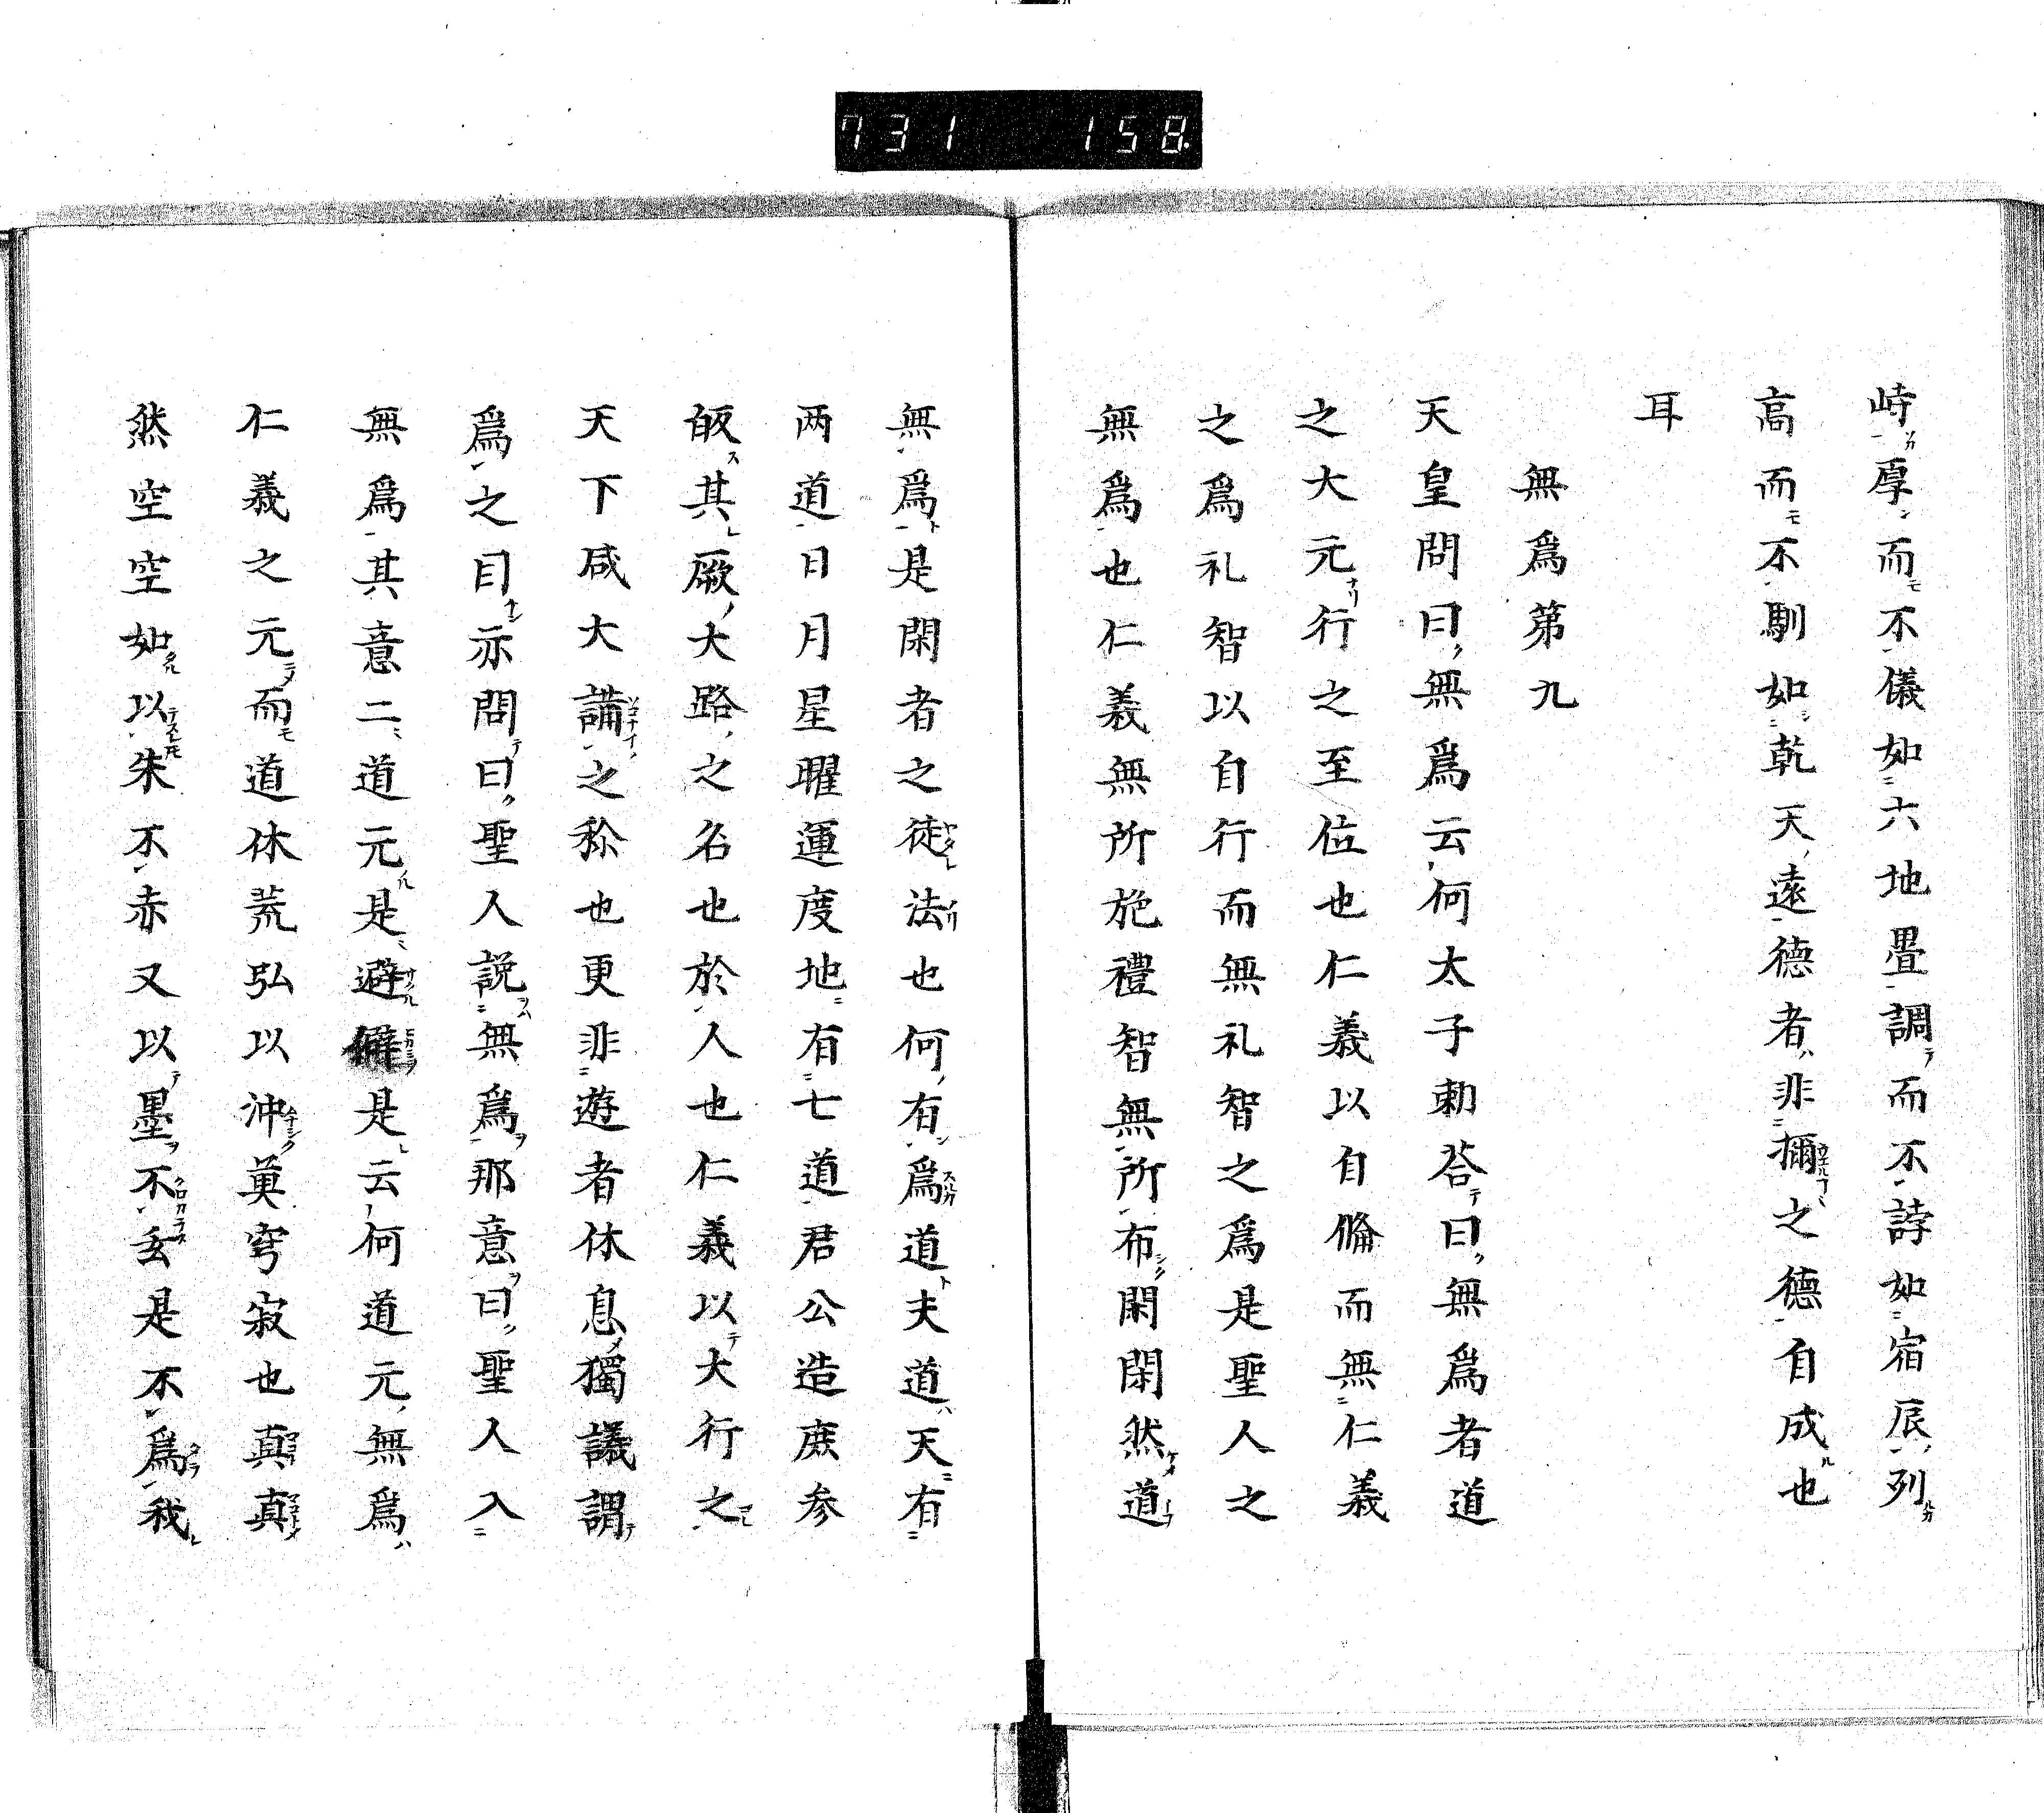 731 158
峙厚而不儀如六地畳調而不誟如宿辰列
高而不馴如乾天遠德者非擟之德自成也
耳
無爲第九
天皇問曰無爲云何太子勅荅曰無爲者道
之大元行之至位也仁義以自脩而無仁義
之爲礼智以自行而無礼智之爲是聖人之
無爲也仁義無所施禮智無所布閑閑然道
無爲是閑者之徒法也何有爲道夫道天有
两道日月星曜運度地有七道君公造庶参
皈其厥大路之名也於人也仁義以大行之
天下咸大講之称也更非遊者休息獨議謂
爲之目亦問曰聖人説無爲那意曰聖人入
無爲其意二道元是避僻是云何道元無爲
仁義之元而道休荒弘以沖莫穹寂也真真
然空空如以朱不赤又以墨不玄是不爲我